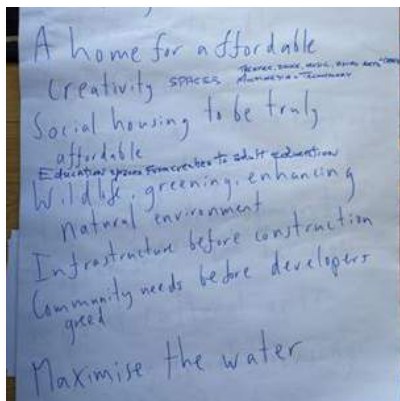 A home for affordable
Creativity SPACES THEATRE, DANCE, MUSIC, VISUAL ARTS,
MULTIMEDIA + TECHNOLOGY
Social housing to be truly
affordable
Education spaces from creches to adult education
Wildlife, greening, enhancing
natural environment
Infrastructure before construction
Community needs before developers
greed
Maximise the water